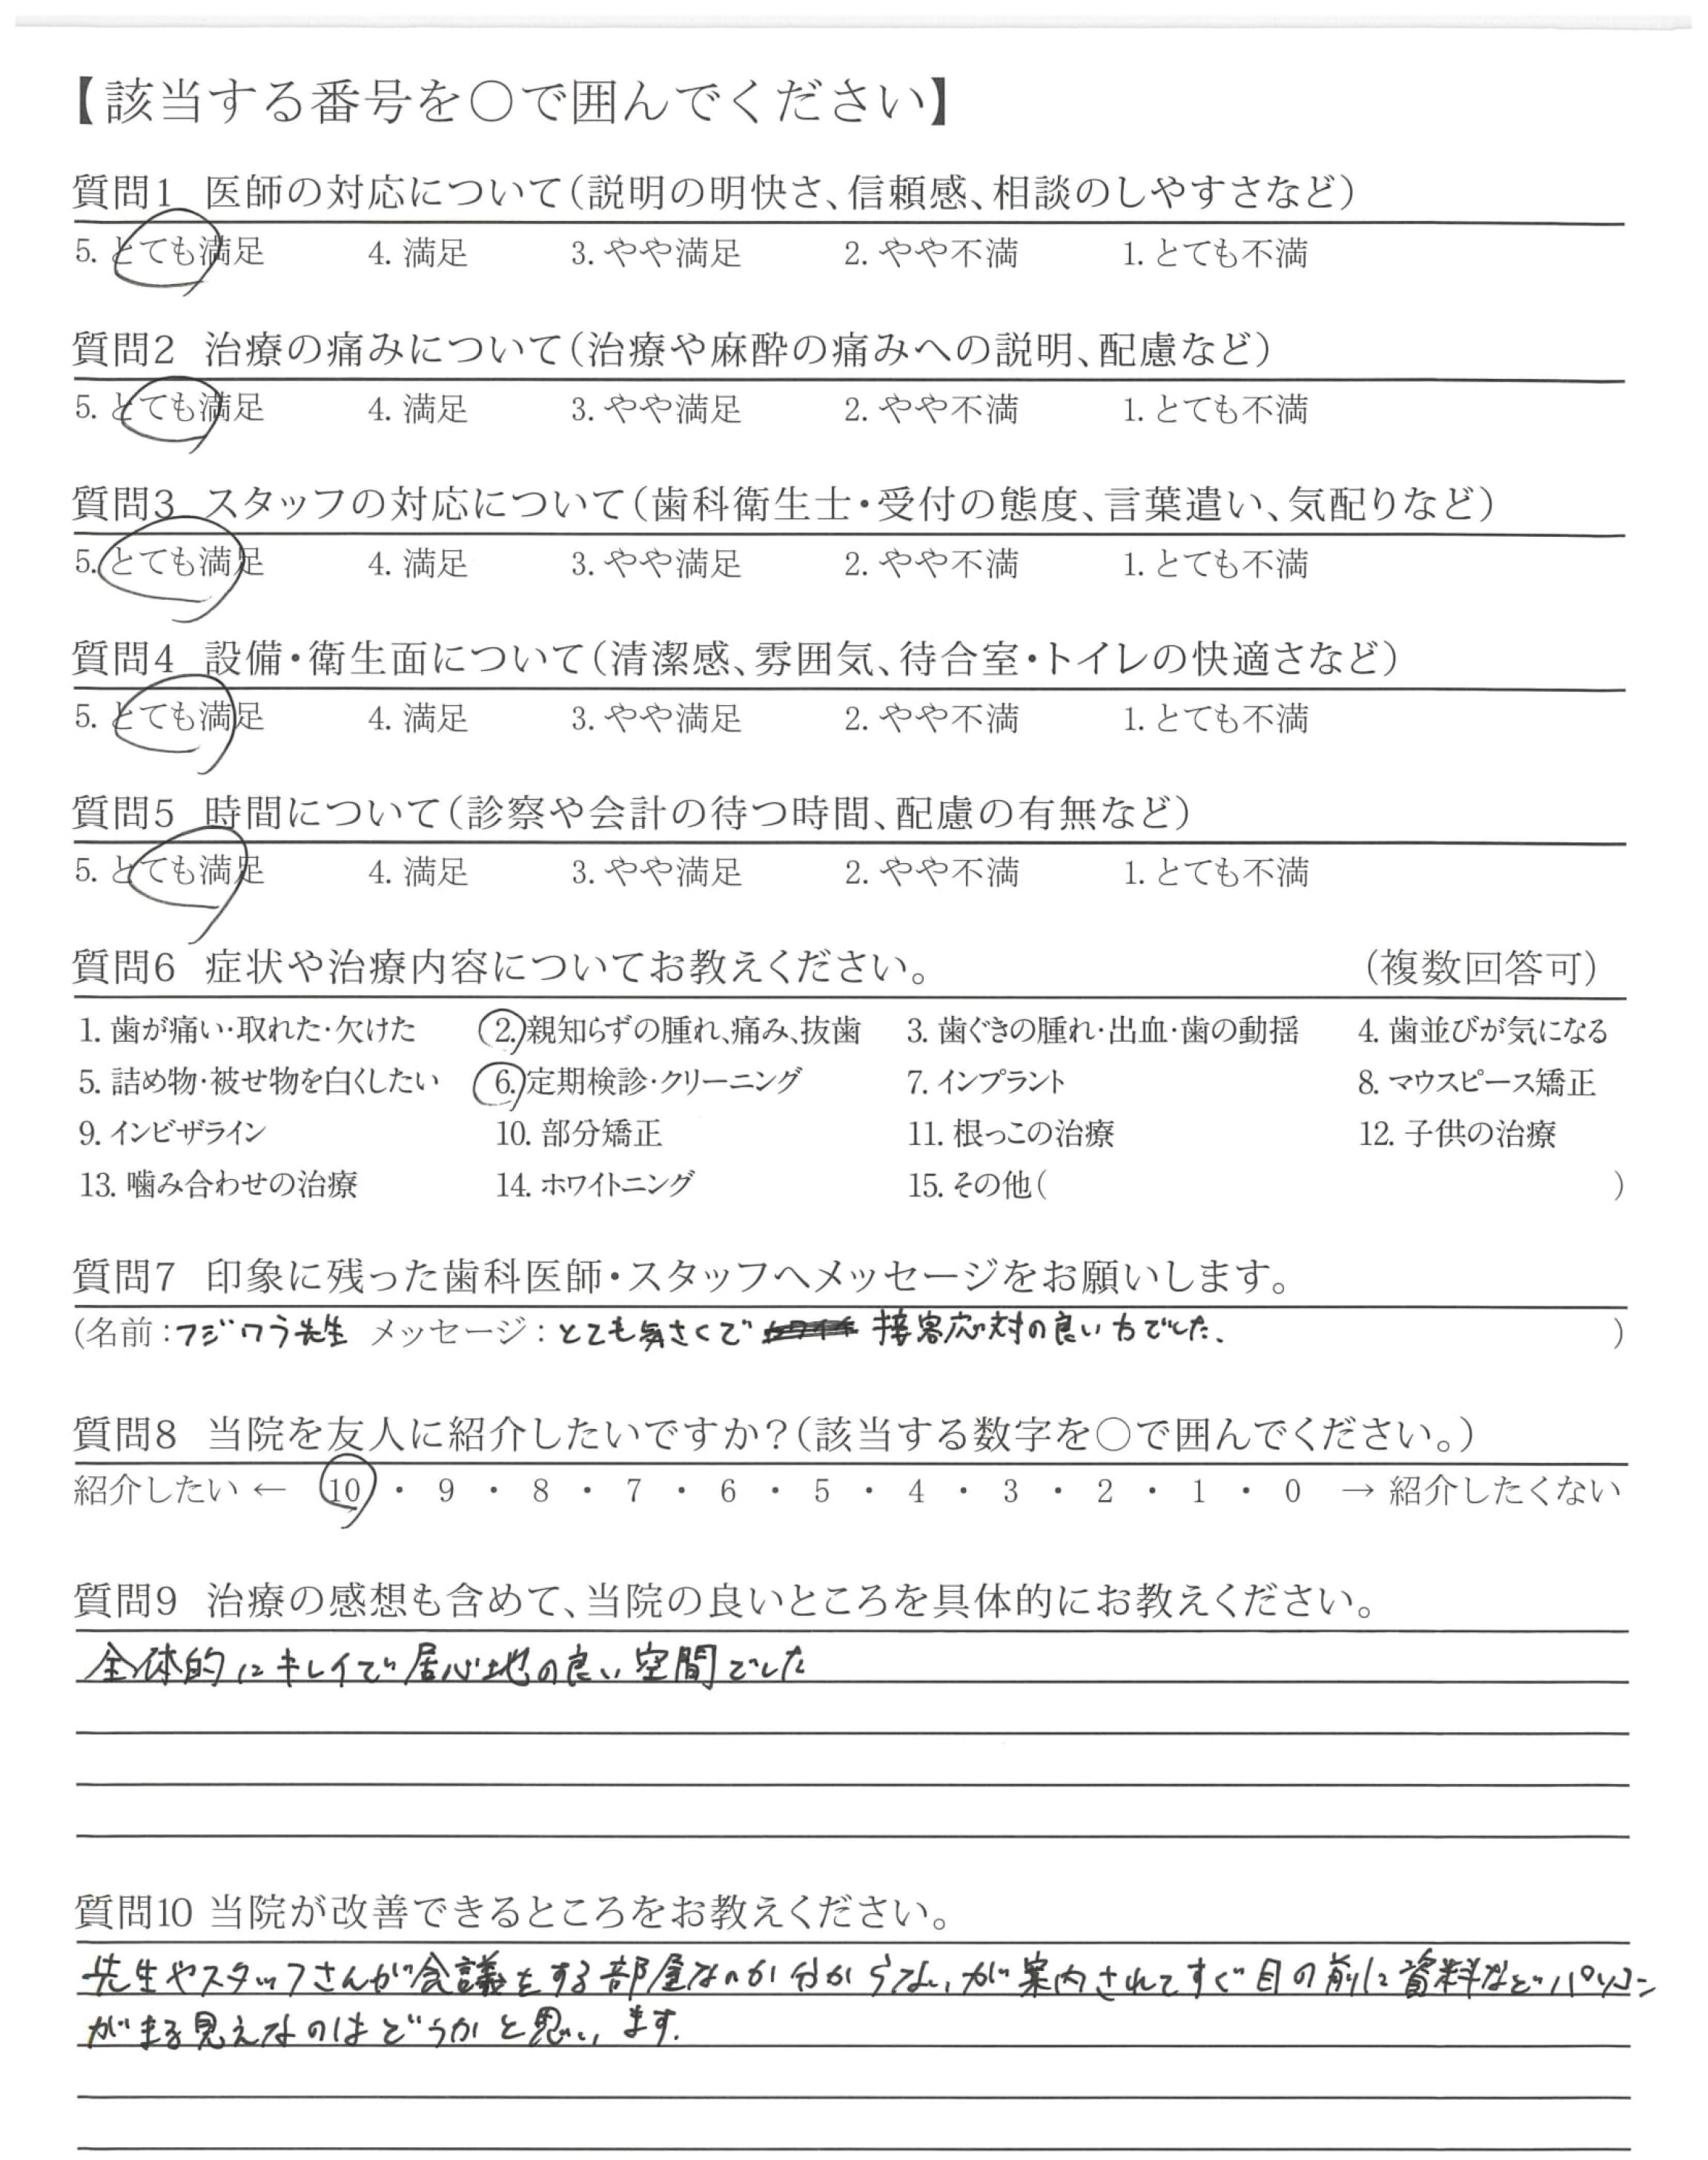 【該当する番号を〇で囲んでください】
質問1 医師の対応について（説明の明快さ、信頼感、相談のしやすさなど）
5. とても満足 4. 満足 3. やや満足 2. やや不満 1. とても不満
質問2 治療の痛みについて（治療や麻酔の痛みへの説明、配慮など）
5. とても満足 4. 満足 3. やや満足 2. やや不満 1. とても不満
質問3 スタッフの対応について（歯科衛生士・受付の態度、言葉遣い、気配りなど）
5. とても満足 4. 満足 3. やや満足 2. やや不満 1. とても不満
質問4 設備・衛生面について（清潔感、雰囲気、待合室・トイレの快適さなど）
5. とても満足 4. 満足 3. やや満足 2. やや不満 1. とても不満
質問5 時間について（診察や会計の待つ時間、配慮の有無など）
5. とても満足 4. 満足 3. やや満足 2. やや不満 1. とても不満
質問6 症状や治療内容についてお教えください。 （複数回答可）
1. 歯が痛い・取れた・欠けた 2. 親知らずの腫れ、痛み、抜歯 3. 歯ぐきの腫れ・出血・歯の動揺 4. 歯並びが気になる
5. 詰め物・被せ物を白くしたい 6. 定期検診・クリーニング 7. インプラント 8. マウスピース矯正
9. インビザライン 10. 部分矯正 11. 根っこの治療 12. 子供の治療
13. 噛み合わせの治療 14. ホワイトニング 15. その他（ ）
質問7 印象に残った歯科医師・スタッフへメッセージをお願いします。
（名前：フジワラ先生 メッセージ：とても気さくで 接客応対の良い方でした. ）
質問8 当院を友人に紹介したいですか？（該当する数字を〇で囲んでください。）
紹介したい ← 10 ・ 9 ・ 8 ・ 7 ・ 6 ・ 5 ・ 4 ・ 3 ・ 2 ・ 1 ・ 0 → 紹介したくない
質問9 治療の感想も含めて、当院の良いところを具体的にお教えください。
全体的にキレイで居心地の良い空間でした
質問10 当院が改善できるところをお教えください。
先生やスタッフさんが会議をする部屋なのか分からないが案内されてすぐ目の前に資料などパソコン
がまる見えなのはどうかと思います.